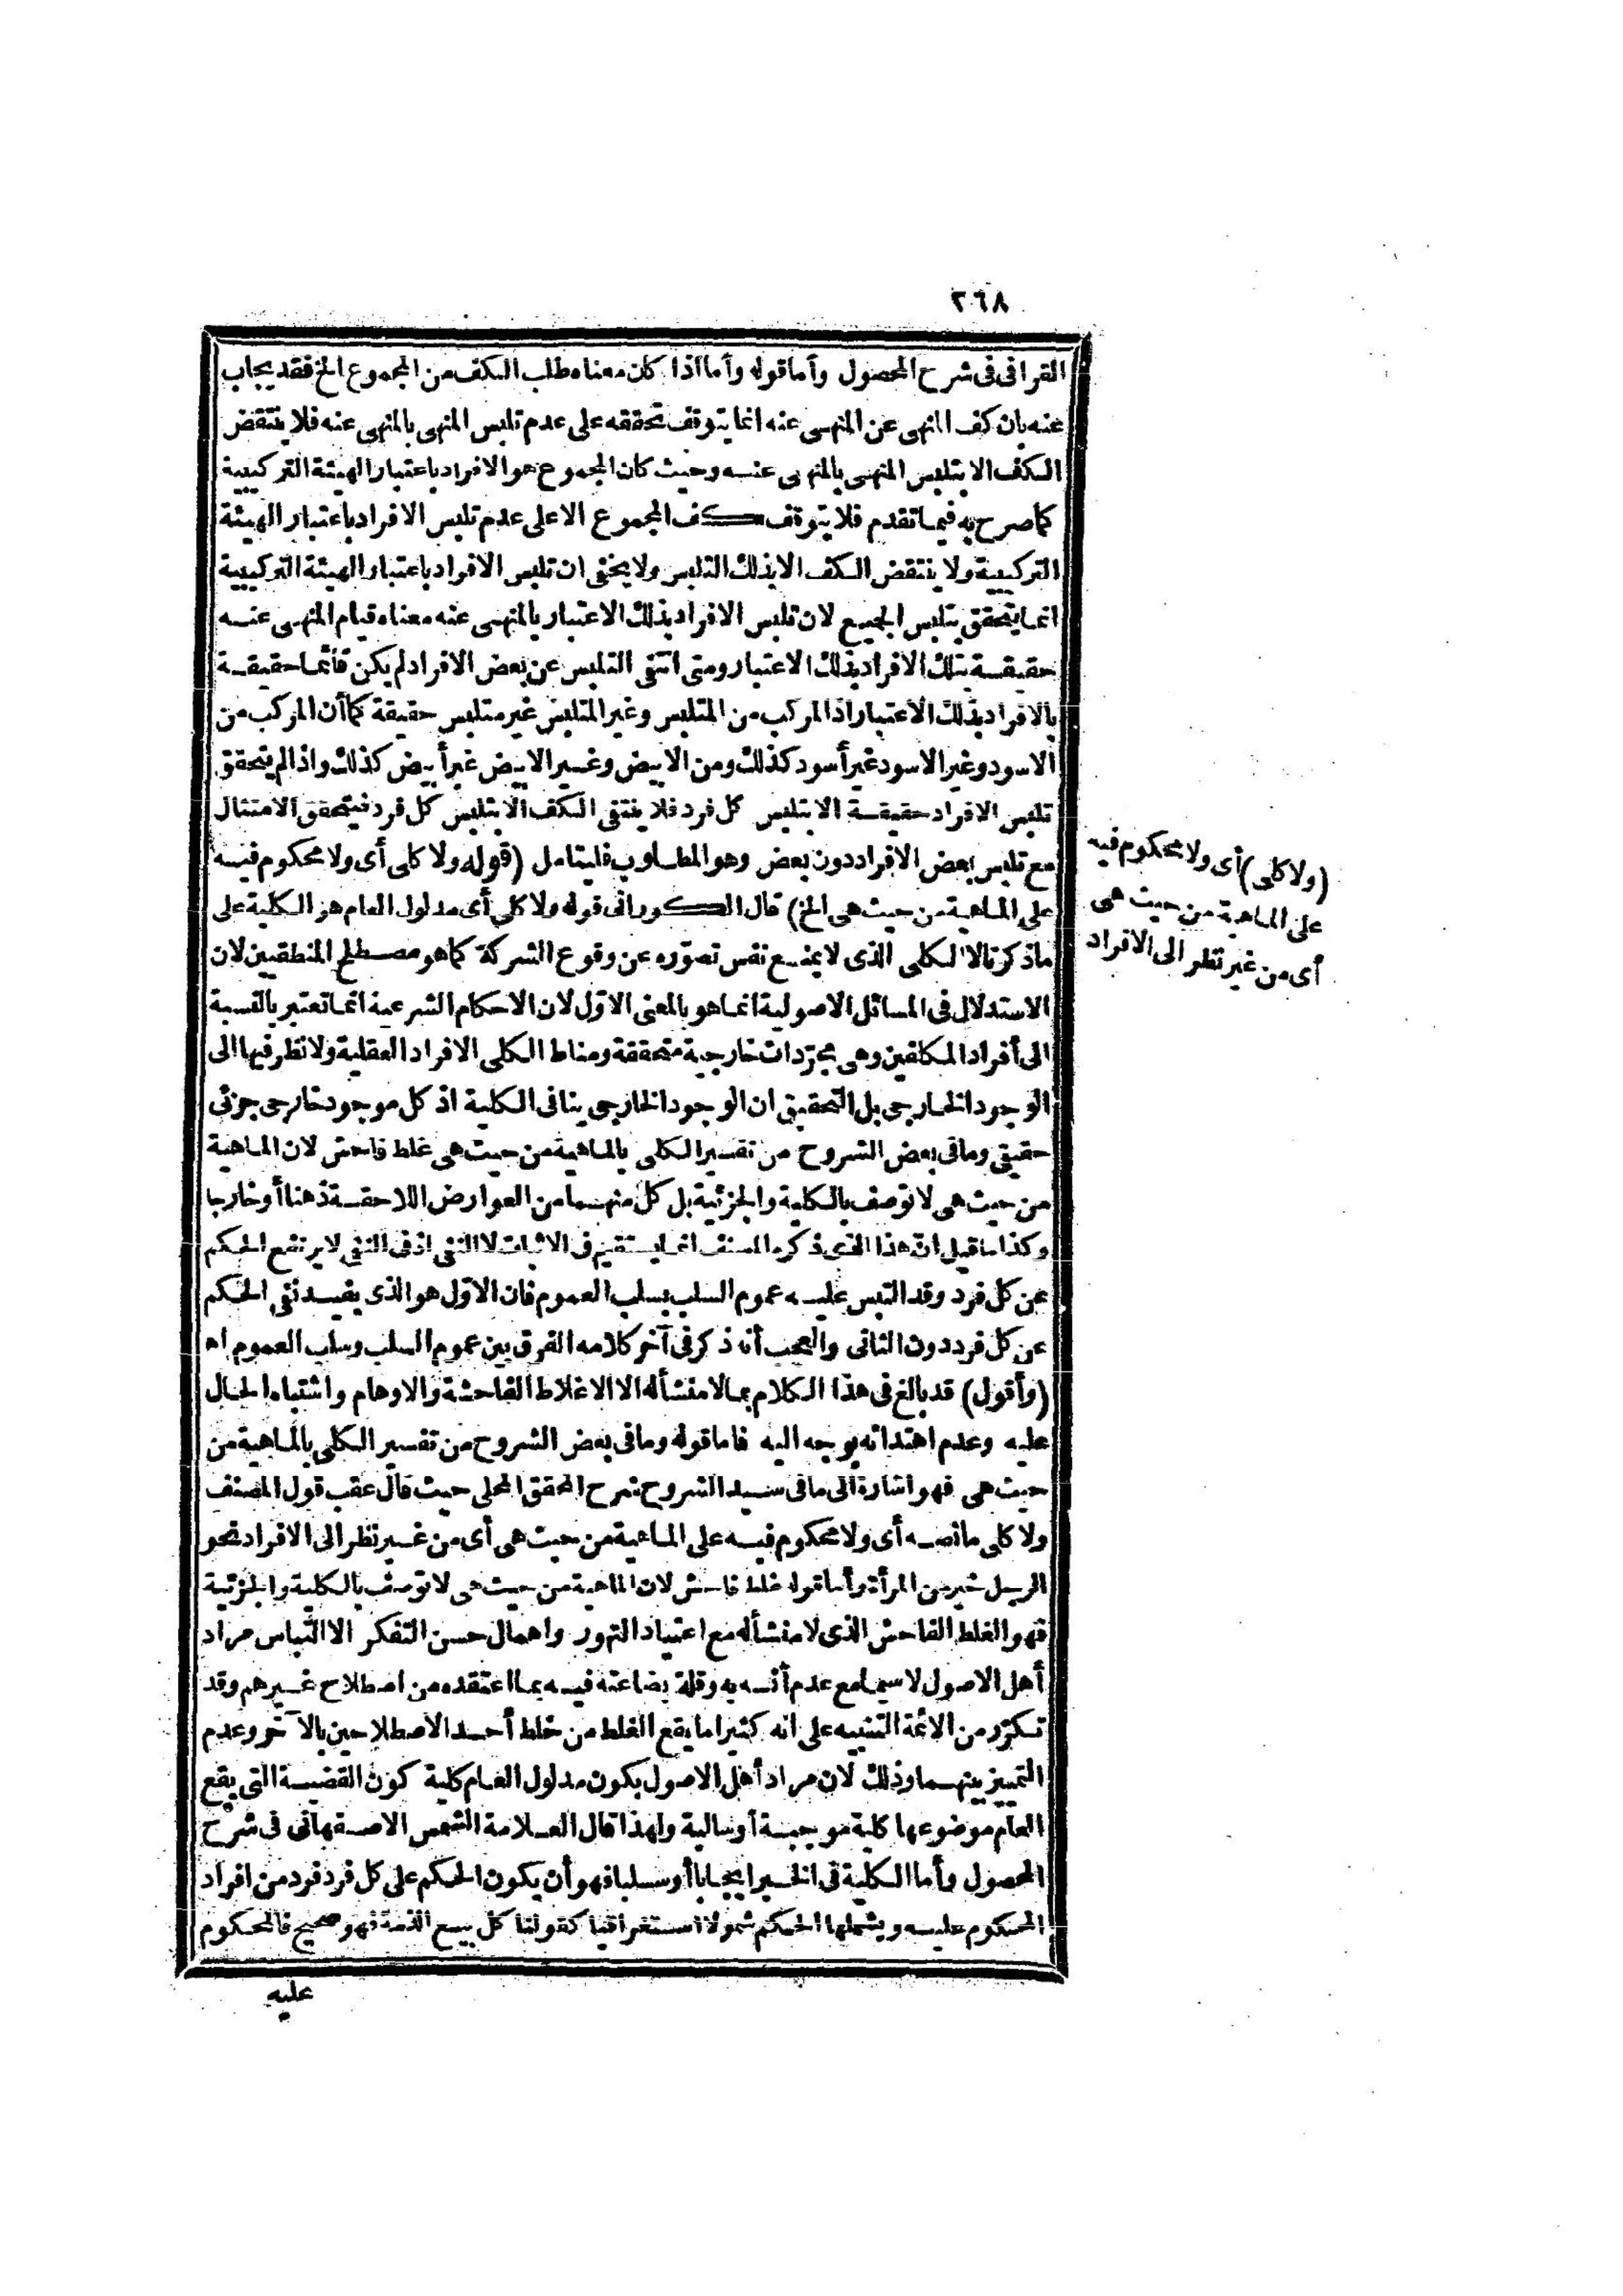 ٢٦٨
القرافى فى شرح المحصول وأما قوله وأما اذا كان معناه طلب الكف من المجموع الخ فقد يجاب
عنه بان كف المنهى عن المنهى عنه انما يتوقف تحققه على عدم تلبس المنهى بالمنهى عنه فلا ينتقض
الكف الا بتلبس المنهى بالمنهى عنه وحيث كان المجموع هو الافراد باعتبار الهيئة التركيبية
كما صرح به فيما تقدم فلا يتوقف كف المجموع الا على عدم تلبس الافراد باعتبار الهيئة
التركيبية ولا ينتقض الكف الا بذلك التلبس ولا يخفى ان تلبس الافراد باعتبار الهيئة التركيبية
انما يتحقق بتلبس الجميع لان تلبس الافراد بذلك الاعتبار بالمنهى عنه معناه قيام المنهى عنه
حقيقة بتلك الافراد بذلك الاعتبار ومتى انتفى التلبس عن بعض الافراد لم يكن قائما حقيقة
بالافراد بذلك الاعتبار اذ المركب من المتلبس وغير المتلبس غير متلبس حقيقة كما أن المركب من
الاسود وغير الاسود غير أسود كذلك ومن الابيض وغير الابيض غير أبيض كذلك واذا لم يتحقق
تلبس الافراد حقيقة الا بتلبس كل فرد فلا ينتفى الكف الا بتلبس كل فرد فيتحقق الامتثال
مع تلبس بعض الافراد دون بعض وهو المطلوب فليتامل (قوله ولا كلى أى ولا محكوم فيه
على الماهية من حيث هى الخ) قال الكورانى قوله ولا كلى أى مدلول العام هو الكلية على
ما ذكرنا لا الكلى الذى لا يمنع نفس تصوّره عن وقوع الشركة كما هو مصطلح المنطقيين لان
الاستدلال فى المسائل الاصولية انما هو بالمعنى الاوّل لان الاحكام الشرعية انما تعتبر بالنسبة
الى أفراد المكلفين وهى مجرّدات خارجية متحققة ومناط الكلى الافراد العقلية ولا نظر فيها الى
الوجود الخارجى بل التحقيق ان الوجود الخارجى ينافى الكلية اذ كل موجود خارجى جزئى
حقيقى وما فى بعض الشروح من تفسير الكلى بالماهية من حيث هى غلط فاحش لان الماهية
من حيث هى لا توصف بالكلية والجزئية بل كل منهما من العوارض اللاحقة ذهنا أو خارجا
وكذا ما قيل انّ هذا الذى ذكره المصنف انما يستقيم فى الاثبات لا النفى اذ فى النفى لا يرتفع الحكم
عن كل فرد وقد التبس عليه عموم السلب بسلب العموم فان الاوّل هو الذى يفيد نفى الحكم
عن كل فرد دون الثانى والعجب أنه ذكر فى آخر كلامه الفرق بين عموم السلب وسلب العموم اه
(وأقول) قد بالغ فى هذا الكلام بما لا منشأ له الا الاغلاط الفاحشة والاوهام واشتباه الحال
عليه وعدم اهتدائه بوجه اليه فاما قوله وما فى بعض الشروح من تفسير الكلى بالماهية من
حيث هى فهو اشارة الى ما فى سيد الشروح شرح المحقق المحلى حيث قال عقب قول المصنف
ولا كلى ما نصه أى ولا محكوم فيه على الماهية من حيث هى أى من غير نظر الى الافراد نحو
الرجل خير من المرأة وأما قوله غلط فاحش لان الماهية من حيث هى لا توصف بالكلية والجزئية
فهو الغلط الفاحش الذى لا منشأ له مع اعتياد التهور واهمال حسن التفكر الا التباس مراد
أهل الاصول لا سيما مع عدم أنسه به وقلة بضاعته فيه بما اعتقده من اصطلاح غيرهم وقد
تكرّر من الائمة التنبيه على انه كثيرا ما يقع الغلط من خلط أحد الاصطلاحين بالآخر وعدم
التمييز بينهما وذلك لان مراد أهل الاصول بكون مدلول العام كلية كون القضية التى يقع
العام موضوعها كلية موجبة أو سالبة ولهذا قال العلامة الشمس الاصفهانى فى شرح
المحصول وأما الكلية فى الخبر ايجابا أو سلبا فهو أن يكون الحكم على كل فرد فرد من افراد
المحكوم عليه ويشملها الحكم شمولا استغراقيا كقولنا كل بيع الذمة فهو صحيح فالمحكوم
عليه
(ولا كلى) أى ولا محكوم فيه
على الماهية من حيث هى
أى من غير نظر الى الافراد